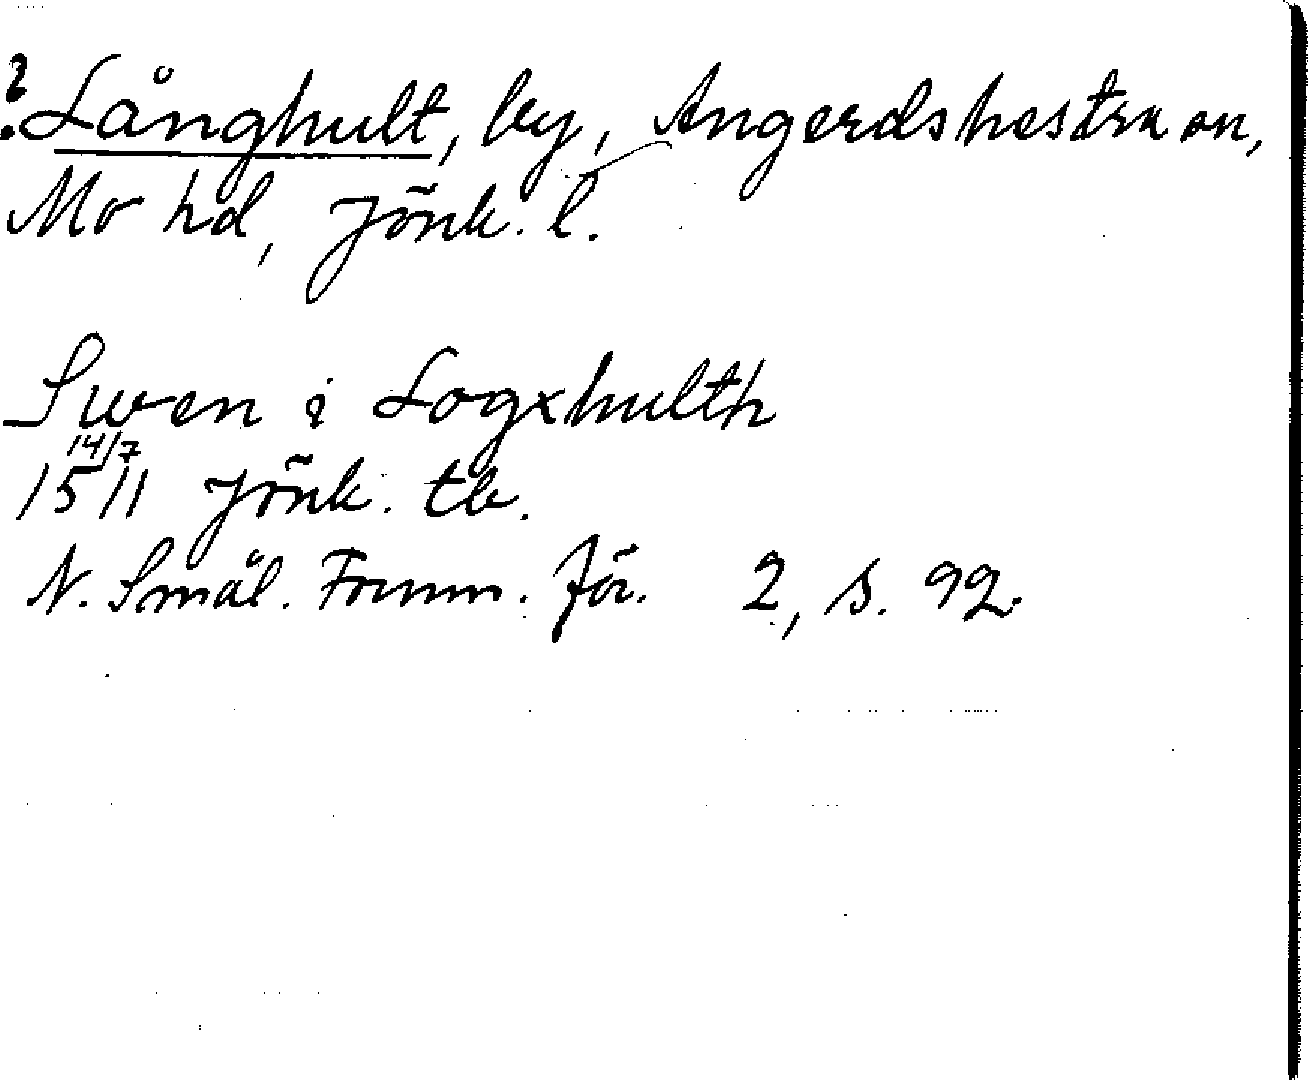 ? Långhult, by, Angerdshestra sn,
Mo hd, Jönk. l.
Swen i Logxhulth
14/7
1511 Jönk. tb.
N. Smål. Fornm. För. 2, s. 92.